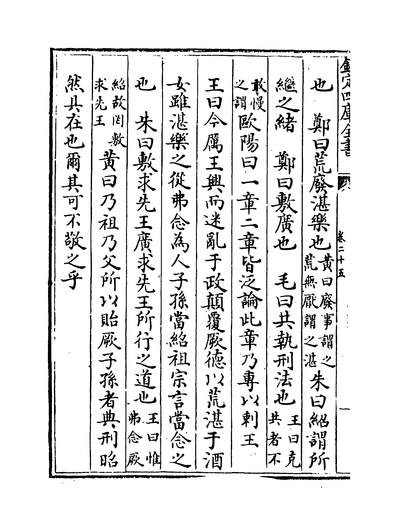 欽定四庫全書
卷二十五
也　鄭曰荒廢湛樂也黃曰廢事謂之荒無厭謂之湛朱曰紹謂所
繼之緒　鄭曰敷廣也　毛曰共執刑法也王曰克共者不
敢慢之謂歐陽曰一章二章皆泛論此章乃專以刺王
王曰今厲王興而迷亂于政顛覆厥德以荒湛于酒
女雖湛樂之從弗念為人子孫當紹祖宗言當念之
也　朱曰敷求先王廣求先王所行之道也王曰惟弗念厥
紹故罔敷求先王黃曰乃祖乃父所以貽厥子孫者典刑昭
然具在也爾其可不敬之乎